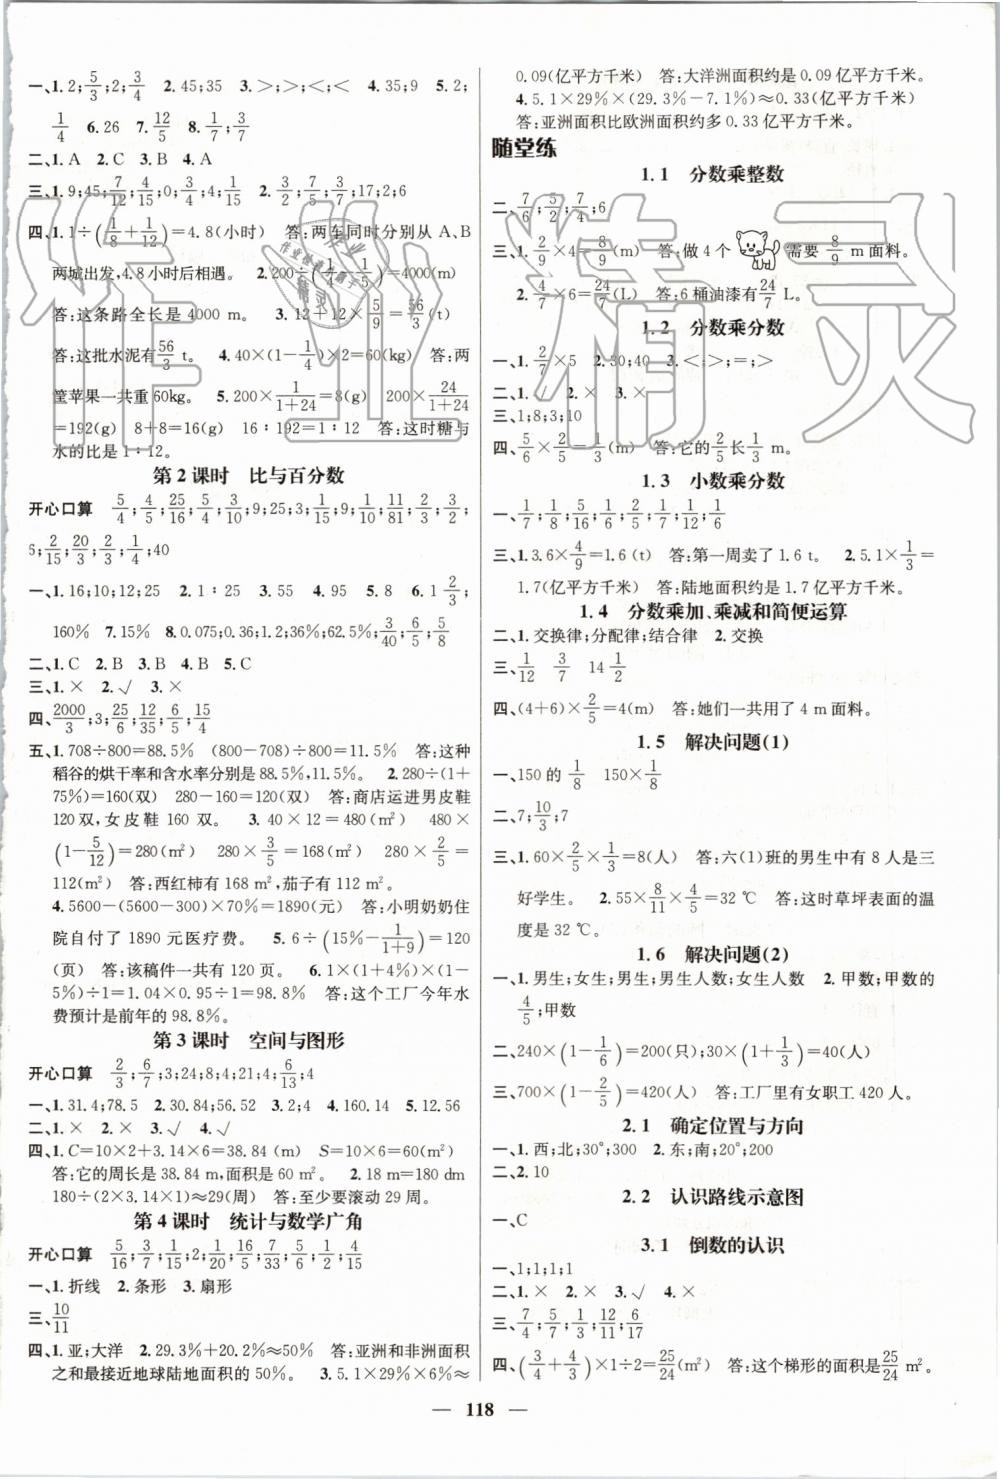 一、1. 2; 5/3; 2; 3/4  2. 45; 35  3. >; >; <; <  4. 35; 9  5. 2;
1/4  6. 26  7. 12/5  8. 1/7; 3/7
二、1. A  2. C  3. B  4. A
三、1. 9; 45; 7/12; 4/15; 0; 3/4; 4; 1/15  2. 3/2; 3/7; 17; 2; 6
四、1. 1÷(1/8+1/12)=4.8(小时)  答:两车同时分别从 A、B
两城出发,4.8 小时后相遇。  2. 200÷(1/4-1/5)=4000(m)
答:这条路全长是 4000 m。  3. 12+12×5/9=56/3(t)
答:这批水泥有56/3 t。  4. 40×(1-1/4)×2=60(kg)  答:两
筐苹果一共重 60kg。  5. 200×1/(1+24)=8(g)  200×24/(1+24)
=192(g)  8+8=16(g)  16∶192=1∶12  答:这时糖与
水的比是 1∶12。
第 2 课时  比与百分数
开心口算  5/4; 4/5; 25/16; 5/4; 3/10; 9; 25; 3; 1/15; 9; 1/10; 11/81; 2/3; 3/2;
5; 2/15; 20/3; 2/3; 1/4; 40
一、1. 16; 10; 12; 25  2. 1∶25  3. 55  4. 95  5. 8  6. 1 2/3;
160%  7. 15%  8. 0.075; 0.36; 1.2; 36%; 62.5%; 3/40; 6/5; 5/8
二、1. C  2. B  3. B  4. B  5. C
三、1. ×  2. √  3. ×
四、2000/3; 3; 25/6; 12/35; 6/5; 15/4
五、1. 708÷800=88.5%  (800-708)÷800=11.5%  答:这种
稻谷的烘干率和含水率分别是 88.5%,11.5%。  2. 280÷(1+
75%)=160(双)  280-160=120(双)  答:商店运进男皮鞋
120 双,女皮鞋 160 双。  3. 40×12=480(m²)  480×
(1-5/12)=280(m²)  280×3/5=168(m²)  280×2/5=
112(m²)  答:西红柿有 168 m²,茄子有 112 m²。
4. 5600-(5600-300)×70%=1890(元)  答:小明奶奶住
院自付了 1890 元医疗费。  5. 6÷(15%-1/(1+9))=120
(页)  答:该稿件一共有 120 页。  6. 1×(1+4%)×(1-
5%)÷1=1.04×0.95÷1=98.8%  答:这个工厂今年水
费预计是前年的 98.8%。
第 3 课时  空间与图形
开心口算  2/3; 6/7; 3; 24; 8; 4; 21; 4; 6/13; 4
一、1. 31.4; 78.5  2. 20.84; 56.52  3. 2; 4  4. 160.14  5. 12.56
二、1. ×  2. ×  3. √  4. √
四、1. C=10×2+3.14×6=38.84 (m)  S=10×6=60(m²)
答:它的周长是 38.84 m,面积是 60 m²。  2. 18 m=180 dm
180÷(2×3.14×1)≈29(周)  答:至少要滚动 29 周。
第 4 课时  统计与数学广角
开心口算  5/16; 3/7; 1/15; 2; 1/20; 16/5; 7/33; 6/5; 1/2; 4/15
一、1. 折线  2. 条形  3. 扇形
三、10/11
四、1. 亚; 大洋  2. 29.3%+20.2%≈50%  答:亚洲和非洲面积
之和最接近地球陆地面积的 50%。  3. 5.1×29%×6%≈
0.09(亿平方千米)  答:大洋洲面积约是 0.09 亿平方千米。
4. 5.1×29%×(29.3%-7.1%)≈0.33(亿平方千米)
答:亚洲面积比欧洲面积约多 0.33 亿平方千米。
随堂练
1.1  分数乘整数
二、7/6; 5/2; 7/4; 6
三、1. 2/9×4=8/9(m)  答:做 4 个 需要 8/9 m 面料。
2. 4/7×6=24/7(L)  答:6 桶油漆有24/7 L。
1.2  分数乘分数
一、1. 2/7×5  2. 30; 40  3. <; >; =; >
二、1. √  2. ×  3. ×
三、1; 8; 3; 10
四、5/6×2/5=1/3(m)  答:它的2/5长1/3 m。
1.3  小数乘分数
一、1/7; 1/8; 5/16; 1/6; 2/5; 1/7; 1/12; 1/6
三、1. 3.6×4/9=1.6(t)  答:第一周卖了 1.6 t。  2. 5.1×1/3=
1.7(亿平方千米)  答:陆地面积约是 1.7 亿平方千米。
1.4  分数乘加、乘减和简便运算
二、1. 交换律; 分配律; 结合律  2. 交换
三、1/12  3/7  14 1/2
四、(4+6)×2/5=4(m)  答:她们一共用了 4 m 面料。
1.5  解决问题(1)
一、150 的 1/8  150×1/8
二、7; 10/3; 7
三、1. 60×2/5×1/3=8(人)  答:六(1)班的男生中有 8 人是三
好学生。  2. 55×8/11×4/5=32 ℃  答:这时草坪表面的温
度是 32 ℃。
1.6  解决问题(2)
一、1. 男生; 女生; 男生; 男生人数; 女生人数  2. 甲数; 甲数的
4/5; 甲数
二、240×(1-1/6)=200(只); 30×(1+1/3)=40(人)
三、700×(1-2/5)=420(人)  答:工厂里有女职工 420 人。
2.1  确定位置与方向
一、1. 西; 北; 30°; 300  2. 东; 南; 20°; 200
二、2. 10
2.2  认识路线示意图
一、C
3.1  倒数的认识
一、1; 1; 1; 1
二、1. ×  2. ×  3. √  4. ×
三、7/4; 5/7; 1/3; 12/11; 6/17
四、(3/4+4/3)×1÷2=25/24(m²)  答:这个梯形的面积是25/24 m²。
— 118 —
作业精灵